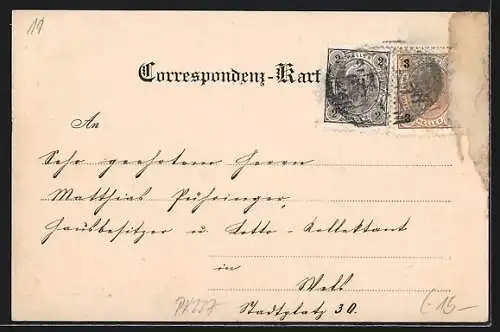 19
2 2
3 3
HELLER
Correspondenz-Kart
An
Sehr geehrtem Herrn
Matthias Pühringer,
Hausbesitzer u Lotto-Kollektant
in
Wels
Stadtplatz 30.
(-15-